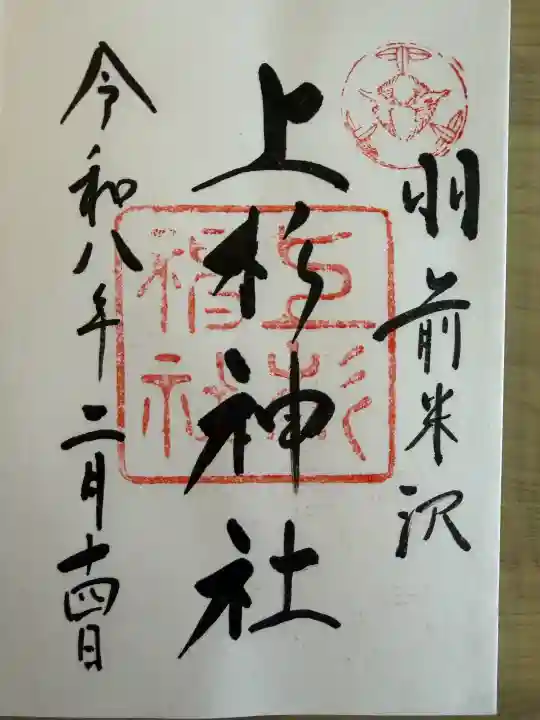 羽前米沢
上杉神社
上杉神社
令和八年二月十四日